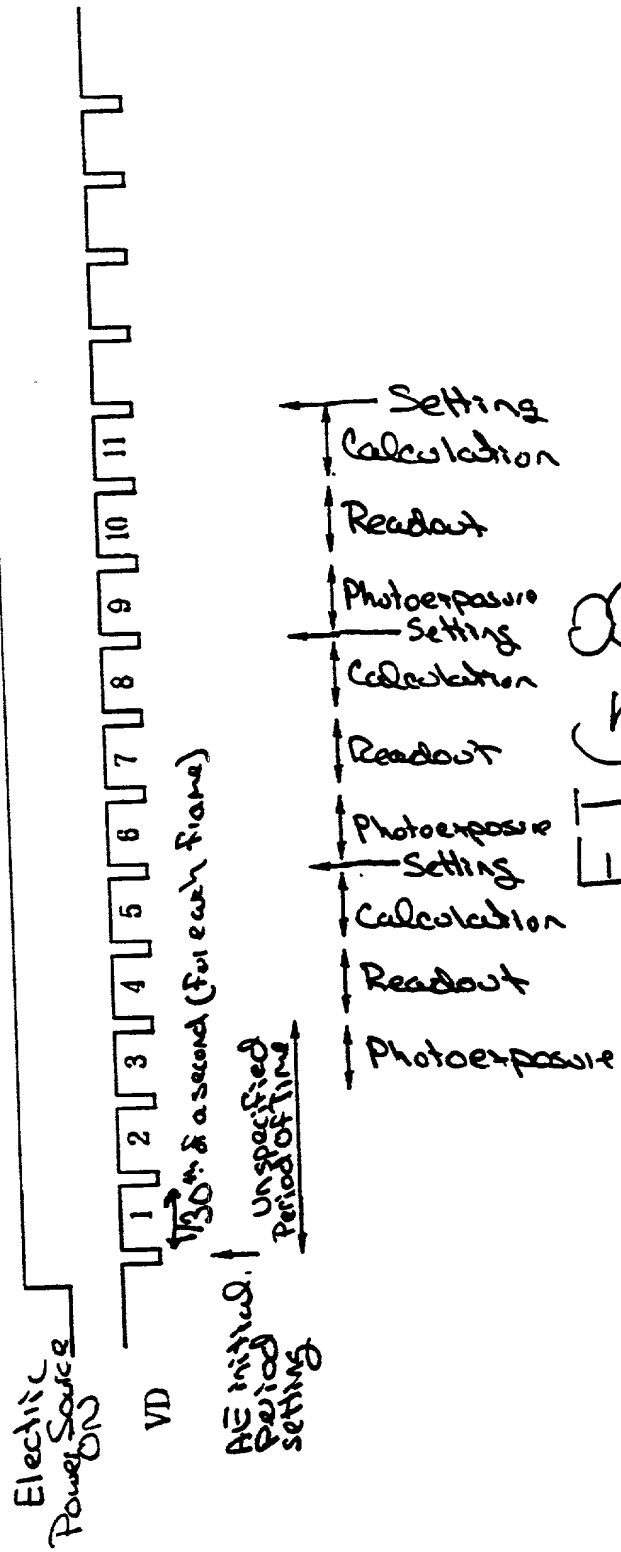 Electric
Power Source
ON
VD
1 2 3 4 5 6 7 8 9 10 11
1/30th of a second (for each frame)
AE initial.
Period
setting
Unspecified
Period of Time
Photoexposure
Readout
Calculation
Setting
Photoexposure
Readout
Calculation
Setting
Photoexposure
Readout
Calculation
Setting
FIG. 8